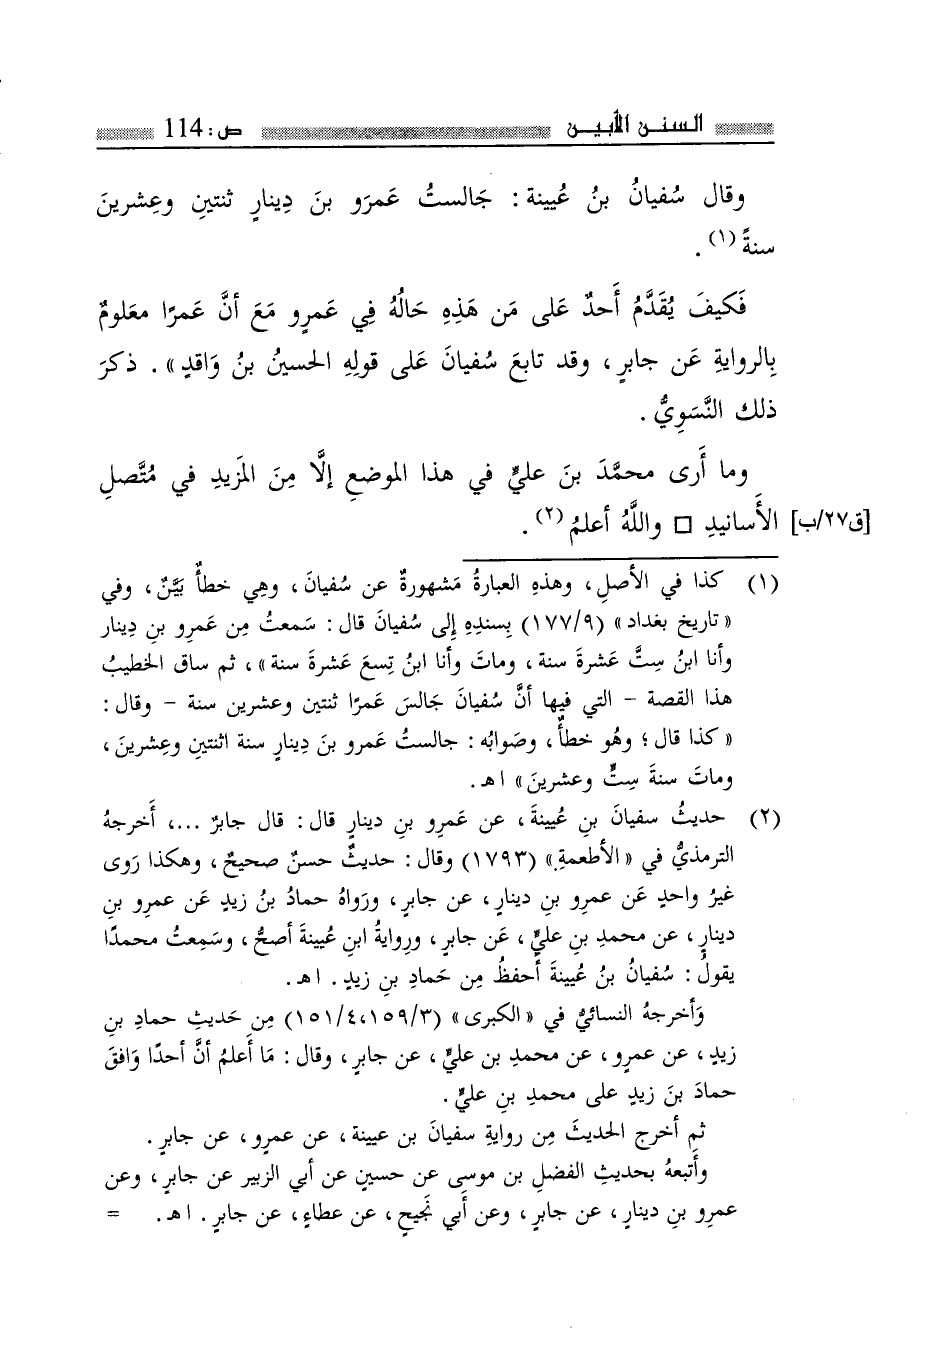 السنن الأبين ص: 114
وقال سُفيانُ بنُ عُيينة : جَالستُ عَمرَو بنَ دِينارٍ ثنتينِ وعِشرينَ
سنةً (١) .
فَكيفَ يُقَدَّمُ أَحدٌ عَلى مَن هَذِهِ حَالُهُ فِي عَمرٍو مَعَ أنَّ عَمرًا معَلومٌ
بِالروايةِ عَن جابرٍ ، وقد تابعَ سُفيانَ عَلى قولِهِ الحسينُ بنُ وَاقدٍ» . ذكرَ
ذلك النَّسَوِيُّ .
وما أَرى محمَّدَ بنَ عليٍّ في هذا الموضعِ إلَّا مِنَ المَزيدِ في مُتَّصلِ
[ق٢٧/ب] الأَسانيدِ □ واللَّهُ أعلمُ (٢) .
(١) كذا في الأصلِ ، وهذهِ العبارةُ مَشهورةٌ عن سُفيانَ ، وهِي خطأٌ بَيَّنٌ ، وفي
« تاريخ بغداد» (١٧٧/٩) بِسندِهِ إلى سُفيانَ قال : سَمعتُ مِن عَمرِو بنِ دِينار
وأنا ابنُ سِتَّ عَشرةَ سنة ، وماتَ وأنا ابنُ تِسعَ عَشرةَ سنة» ، ثم ساق الخطيبُ
هذا القصة – التي فيها أنَّ سُفيانَ جَالسَ عَمرًا ثنتين وعشرين سنة – وقال :
« كذا قال ؛ وهُو خطأٌ ، وصَوابُه : جالستُ عَمرو بنَ دِينارٍ سنة اثنتينِ وعِشرينَ ،
وماتَ سنةَ سِتٍّ وعشرينَ» اهـ .
(٢) حديثُ سفيانَ بنِ عُيينةَ ، عن عَمرِو بنِ دينارٍ قال : قال جابرٌ ...، أَخرجهُ
الترمذيُّ في «الأطعمةِ» (١٧٩٣) وقال : حديثٌ حسنٌ صحيحٌ ، وهكذا رَوى
غيرُ واحدٍ عَن عمرِو بنِ دينارٍ ، عن جابرٍ ، ورَواهُ حمادُ بنُ زيدٍ عَن عمرِو بنِ
دينارٍ ، عن محمدِ بنِ عليٍّ ، عَن جابرٍ ، ورِوايةُ ابنِ عُيينةَ أصحُّ ، وسَمِعتُ محمدًا
يقولُ : سُفيانُ بنُ عُيينةَ أَحفظُ مِن حَمادِ بنِ زيدٍ . اهـ .
وَأخرجهُ النسائيُّ في «الكبرى» (١٥١/٤،١٥٩/٣) مِن حَديثِ حمادِ بنِ
زيدٍ ، عن عمرٍو ، عن محمدِ بن عليٍّ ، عن جابرٍ ، وقال : مَا أَعلمُ أنَّ أحدًا وَافقَ
حمادَ بنَ زيدٍ على محمدِ بنِ عليٍّ .
ثم أخرج الحديثَ مِن روايةِ سفيانَ بن عيينة ، عن عمرٍو ، عن جابرٍ .
وأَتبعهُ بحديثِ الفضلِ بن موسى عن حسينٍ عن أبي الزبير عن جابرٍ ، وعن
عمرِو بنِ دينارٍ ، عن جابرٍ ، وعن أَبي نَجيحٍ ، عن عطاءٍ ، عن جابرٍ . اهـ . =